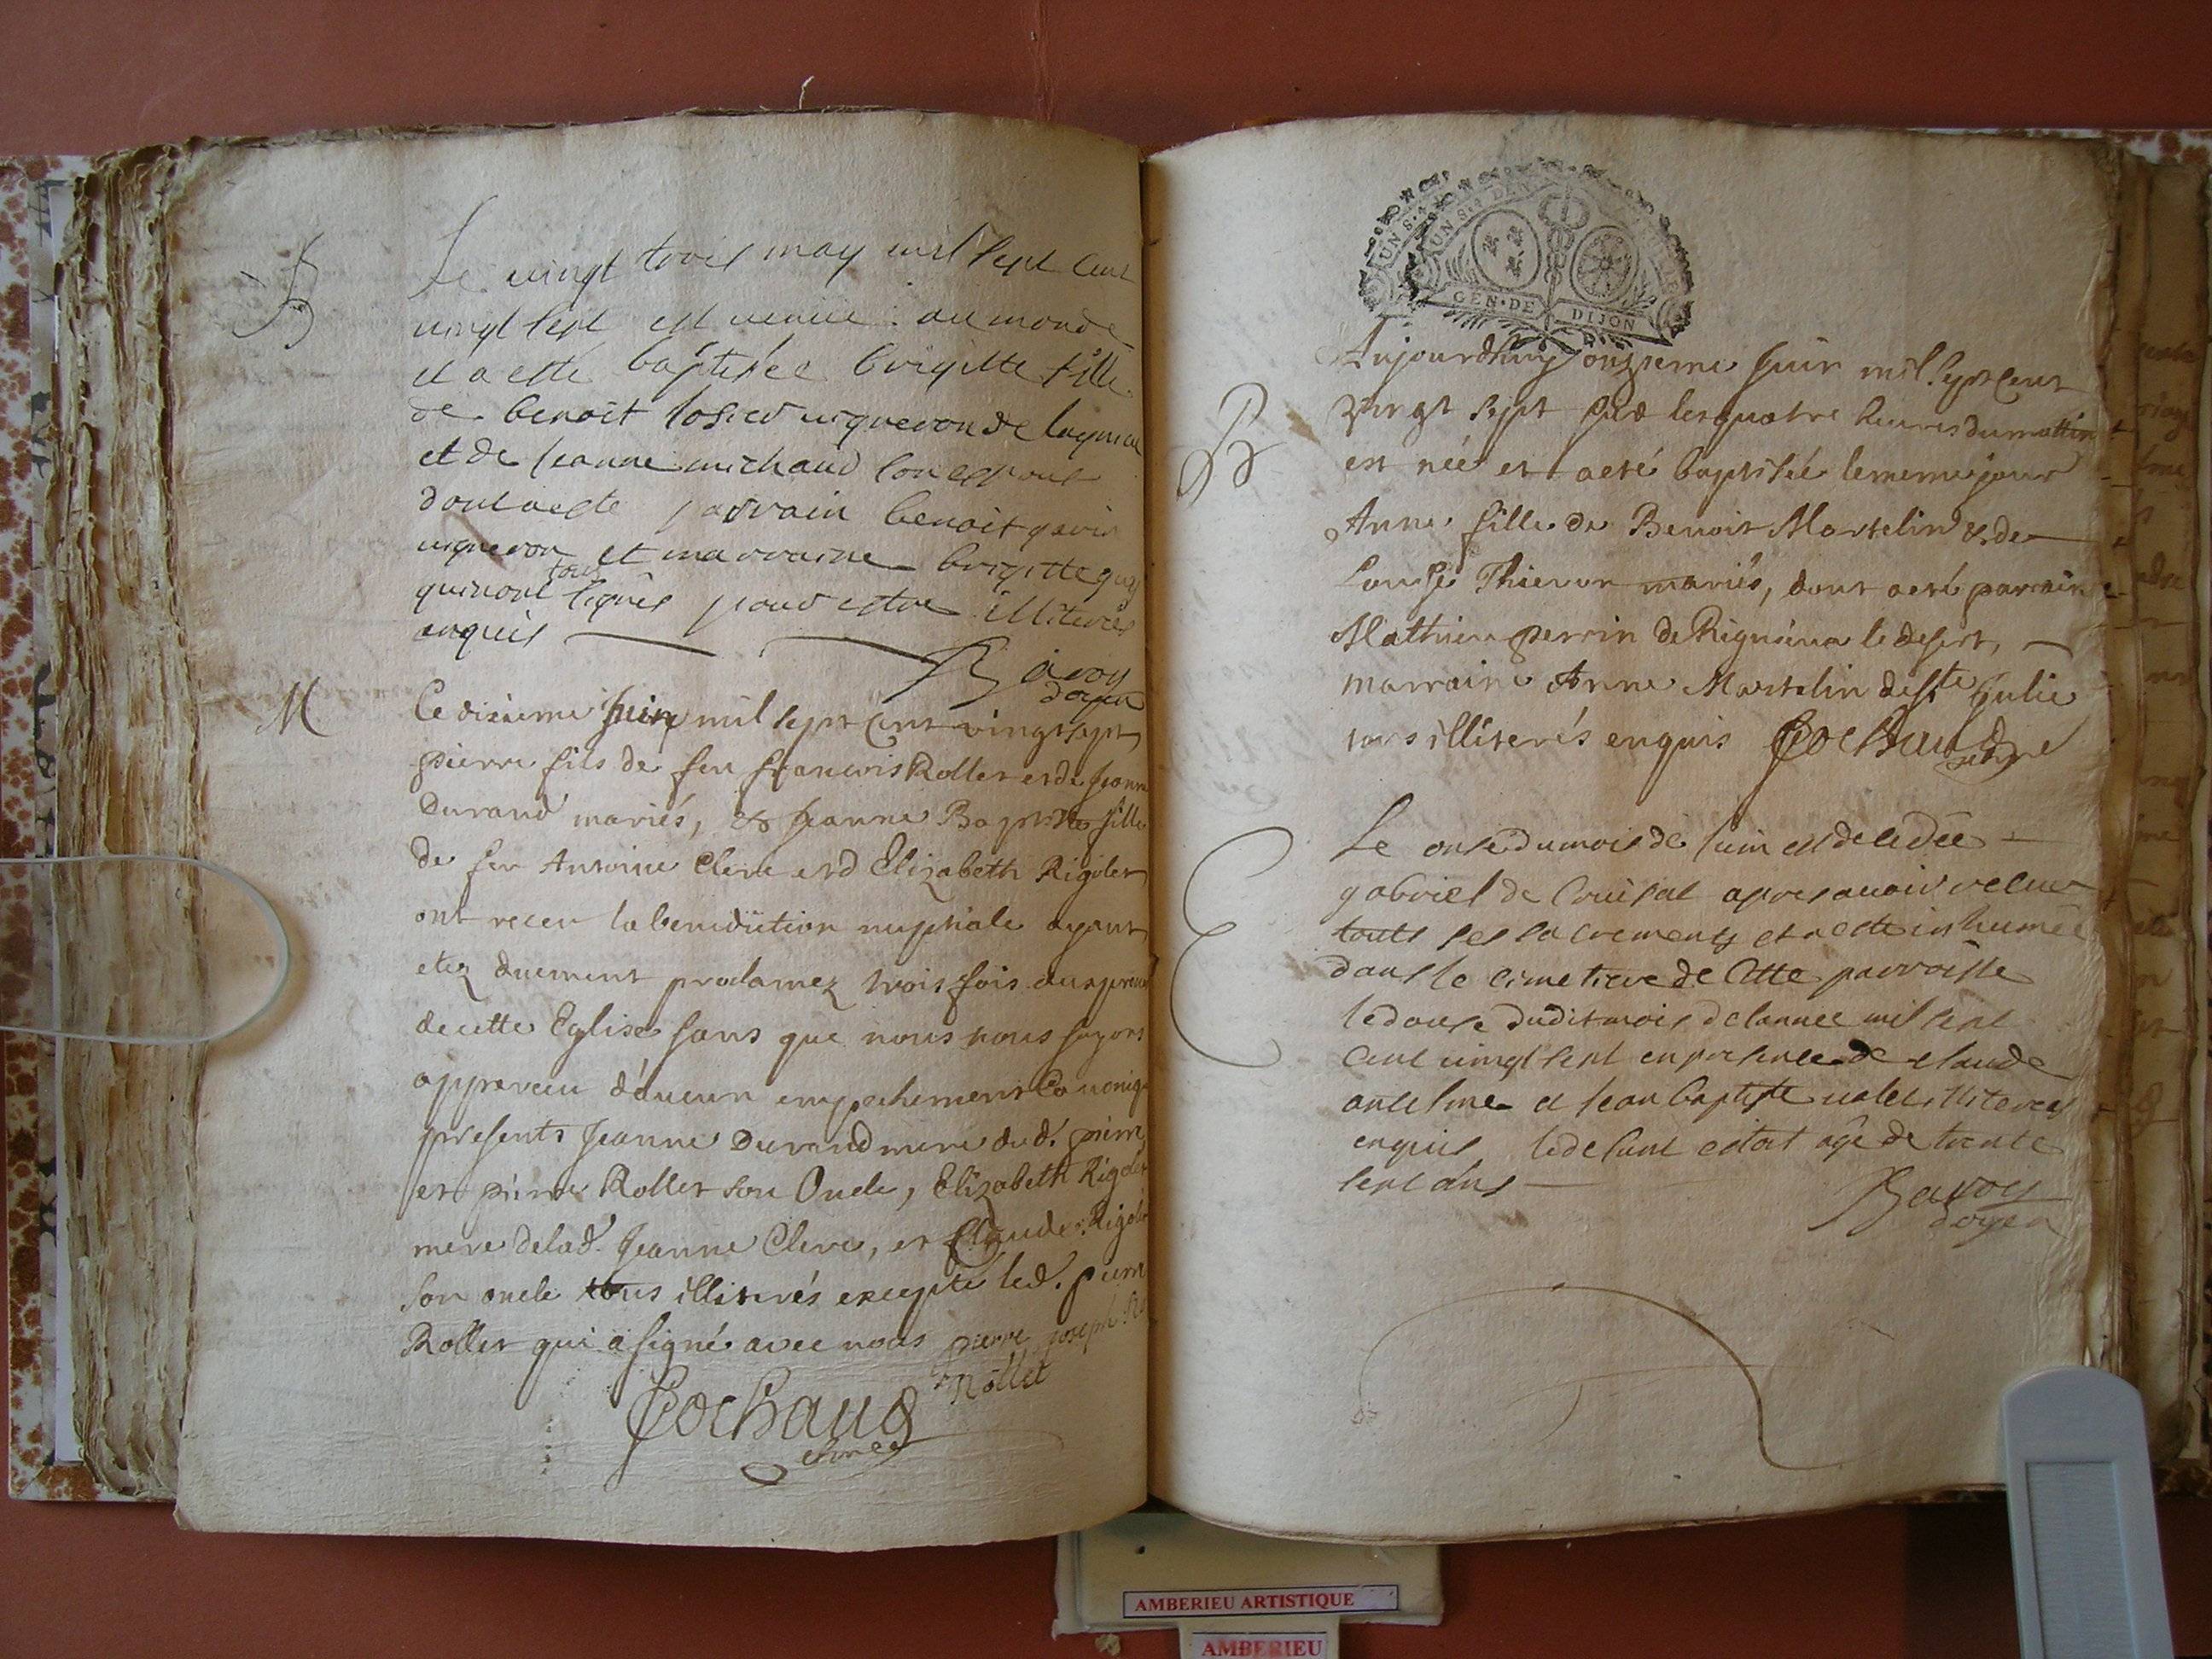 B
Le vingt trois may mil sept cent
vingt sept est venue au monde
et a esté baptisée brigitte fille
de benoit vigneron de lagnieu
et de Jeanne michaud son espouse
dont a este parrain benoit
vigneron et marraine brigitte guy
qui n'ont tous signés pour estre illiterés
enquis
Savoy
doyen
M
Ce dixieme Juin mil sept cent vingt sept
pierre fils de feu francois Rollet et de Jeanne
Durand mariés, & Jeanne Baptiste fille
de feu Antoine Clerc et d Elizabeth Rigolet
ont receu la benediction nuptiale ayant
etez duement proclamez trois fois au
de cette Eglise sans que nous nous soyons
apperceu d'aucun empechement Canonique
presents Jeanne Durand mere dud. pierre
et pierre Rollet son Oncle, Elizabeth Rigolet
mere de lad. Jeanne Clerc, et Claude Rigolet
son oncle tous illiterés excepté led. pierre
Rollet qui a signé avec nous pierre joseph
Rollet
Cochaud
UN S. DEN
UN S. DEN
GEN. DE DIJON
B
Aujourdhuy onzieme Juin mil sept cent
vingt sept sur les quatre heures du mattin
est née et a eté baptisée le meme jour
Anne fille de Benoit Martelin & de
Louise mariés, dont a eté parrain
Mathieu perrin de Rigneux le desert,
marraine Anne Martelin de Ste Julie
tous illiterés enquis Cochaud
Le onse du mois de Juin est decedée
gabriel de apres avoir receu
touts ses sacrements et a esté inhumée
dans le cimetiere de Cette parroisse
le douse dudit mois de l annee mil sept
cent vingt sept en presence de claude
antelme et Jean baptiste valet illiteres
enquis le defunt estoit âgé de trente
sept ans
Savoy
doyen
AMBERIEU ARTISTIQUE
AMBERIEU